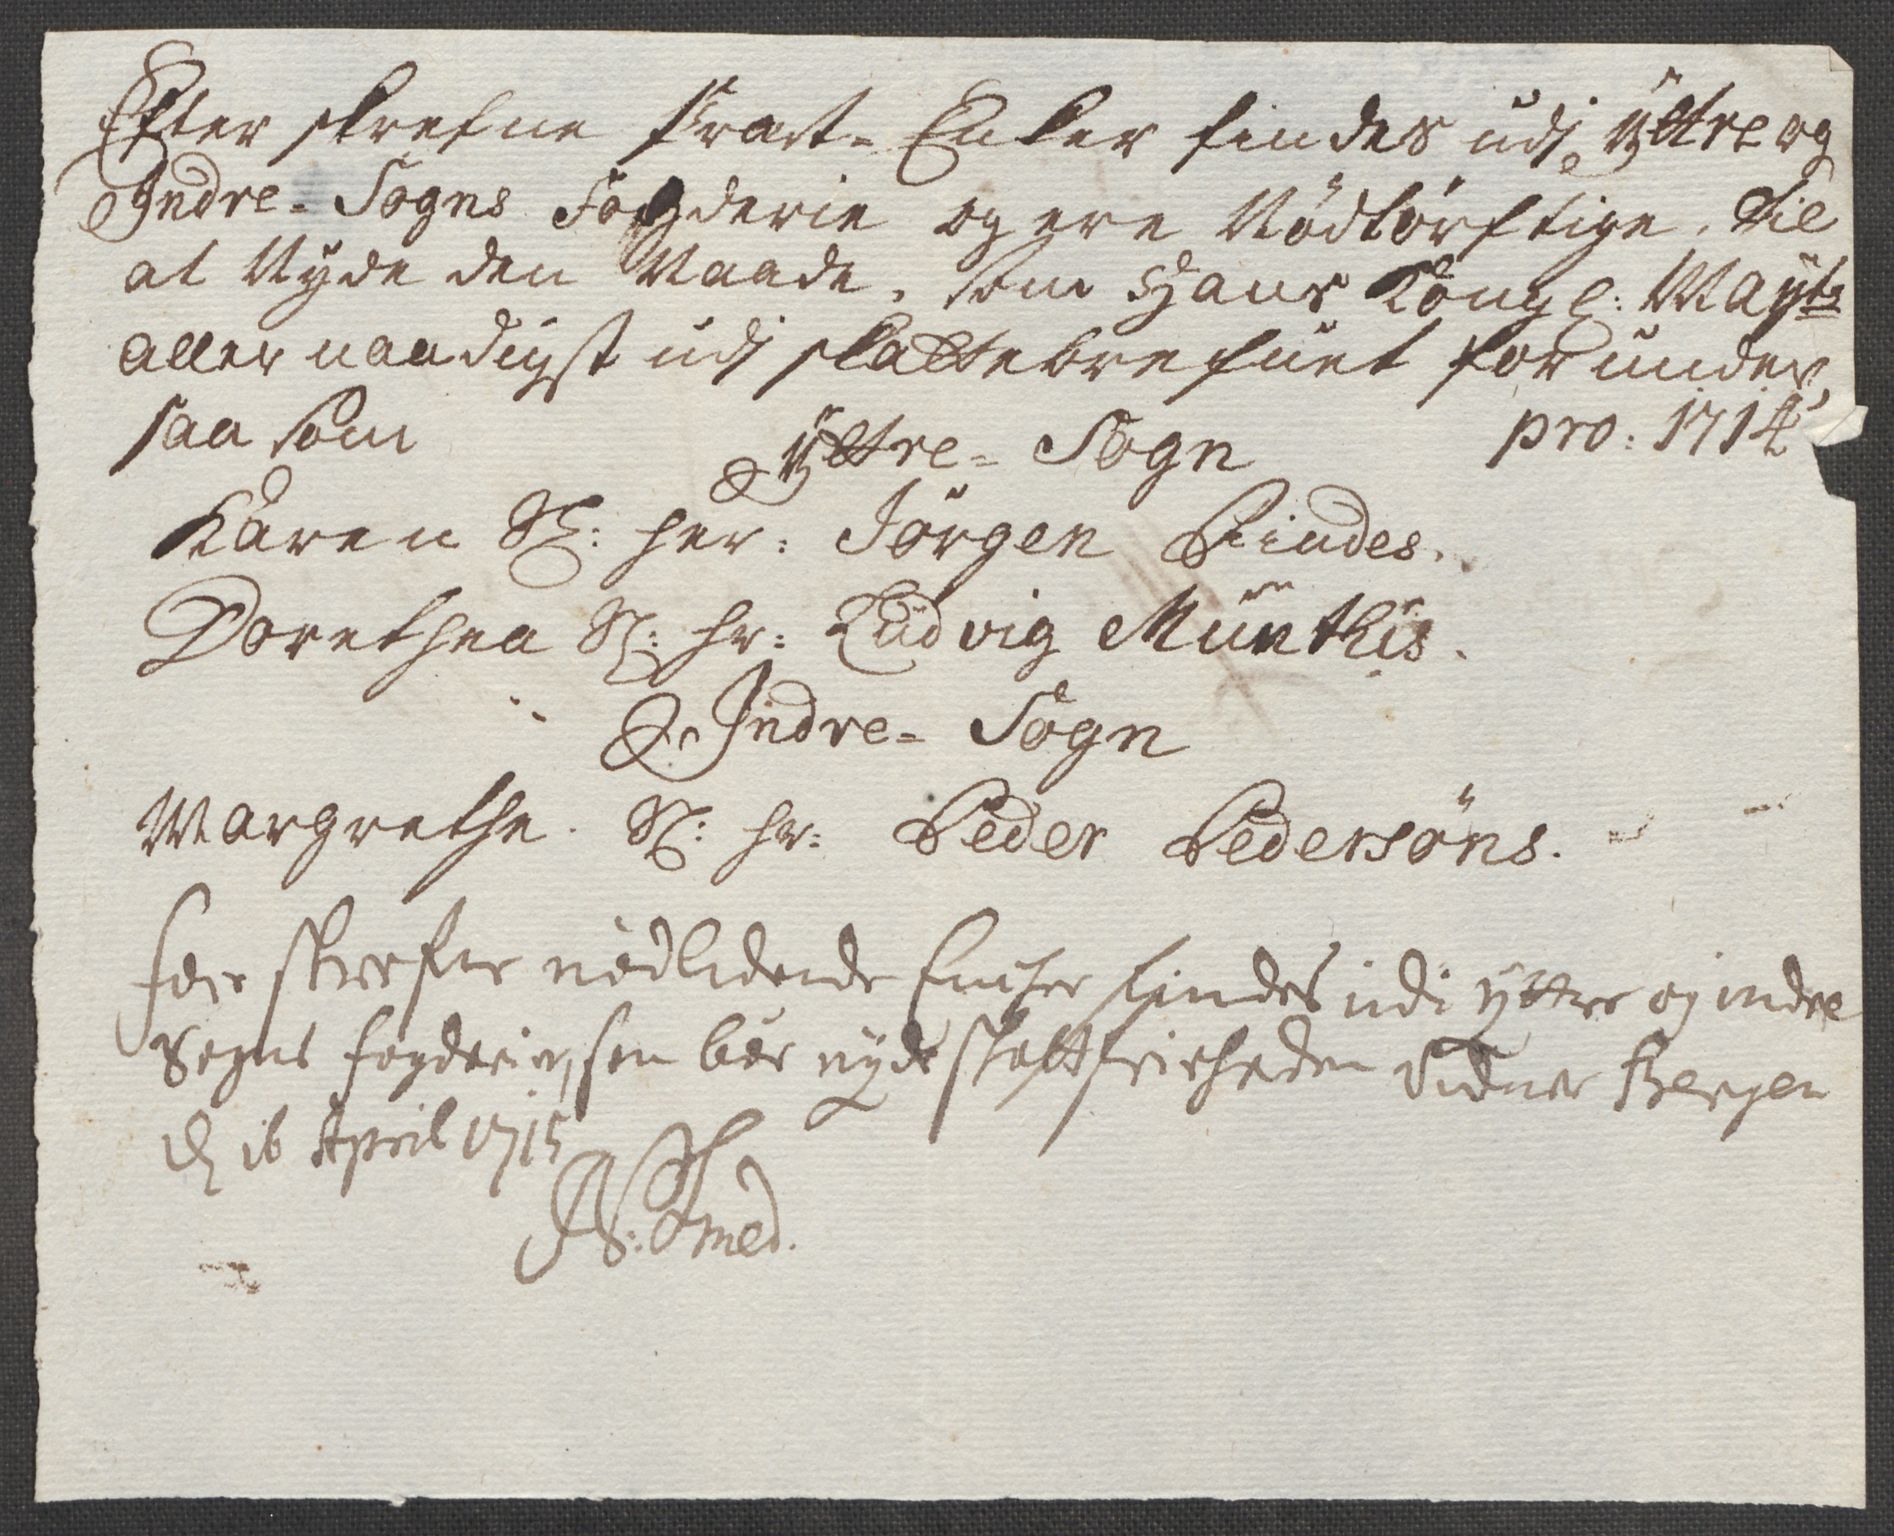 Efter skrefne Præste- Encker findes udj Yttre og
Indre- Sogns Fogderie og ere Nödtörftige, til
at Nyde den Naade, som Hans Kongl: Mayts
allernaadigst udj skattebrefuet forunder,
saasom pro: 1714
Yttre- Sogn
Karen Sl: her: Jörgen Lindes.
Dorethea Sl: hr: Ludvig Munthis.
Indre- Sogn
Margrethe Sl: hr: Peder Pedersöns.
For skrefne nödlidende Encker findes udi yttre og indre
Sogns fogderie, som bör nyde skattfriheden vidner Bergen
d 16 April 1715
Smed.